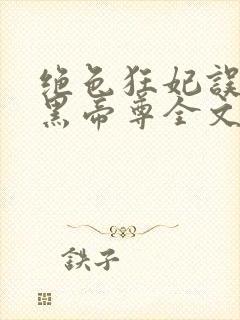 绝色狂妃誤
黑帝尊全文
鉄子